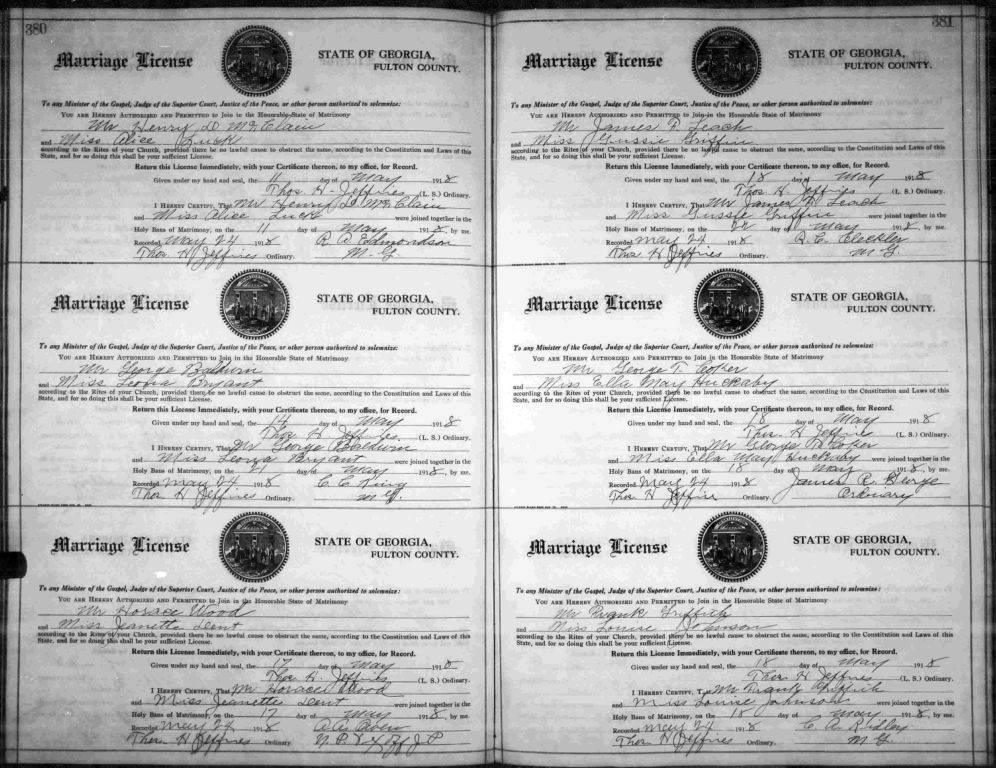 380
Marriage License
STATE OF GEORGIA,
FULTON COUNTY.
To any Minister of the Gospel, Judge of the Superior Court, Justice of the Peace, or other person authorized to solemnize:
YOU ARE HEREBY AUTHORIZED AND PERMITTED to Join in the Honorable State of Matrimony
Mr Henry D McClain
and Miss Alice Luck
according to the Rites of your Church, provided there be no lawful cause to obstruct the same, according to the Constitution and Laws of this
State, and for so doing this shall be your sufficient License.
Return this License Immediately, with your Certificate thereon, to my office, for Record.
Given under my hand and seal, the 11 day of May 1918
Thos. H. Jeffries (L. S.) Ordinary.
I HEREBY CERTIFY, That Mr Henry D McClain
and Miss Alice Luck were joined together in the
Holy Bans of Matrimony, on the 11 day of May 1918, by me.
Recorded May 24 1918 R. A. Edmondson
Thos H Jeffries Ordinary. M. G.
Marriage License
STATE OF GEORGIA,
FULTON COUNTY.
To any Minister of the Gospel, Judge of the Superior Court, Justice of the Peace, or other person authorized to solemnize:
YOU ARE HEREBY AUTHORIZED AND PERMITTED to Join in the Honorable State of Matrimony
Mr George Baldwin
and Miss Leona Bryant
according to the Rites of your Church, provided there be no lawful cause to obstruct the same, according to the Constitution and Laws of this
State, and for so doing this shall be your sufficient License.
Return this License Immediately, with your Certificate thereon, to my office, for Record.
Given under my hand and seal, the 14 day of May 1918
Thos H Jeffries (L. S.) Ordinary.
I HEREBY CERTIFY, That Mr George Baldwin
and Miss Leona Bryant were joined together in the
Holy Bans of Matrimony, on the 21 day of May 1918, by me.
Recorded May 24 1918 C. C. King
Thos H Jeffries Ordinary. M. G.
Marriage License
STATE OF GEORGIA,
FULTON COUNTY.
To any Minister of the Gospel, Judge of the Superior Court, Justice of the Peace, or other person authorized to solemnize:
YOU ARE HEREBY AUTHORIZED AND PERMITTED to Join in the Honorable State of Matrimony
Mr Horace Wood
and Miss Jeanette Dent
according to the Rites of your Church, provided there be no lawful cause to obstruct the same, according to the Constitution and Laws of this
State, and for so doing this shall be your sufficient License.
Return this License Immediately, with your Certificate thereon, to my office, for Record.
Given under my hand and seal, the 17 day of May 1918
Thos H Jeffries (L. S.) Ordinary.
I HEREBY CERTIFY, That Mr Horace Wood
and Miss Jeanette Dent were joined together in the
Holy Bans of Matrimony, on the 17 day of May 1918, by me.
Recorded May 24 1918
Thos H Jeffries Ordinary. J P
381
Marriage License
STATE OF GEORGIA,
FULTON COUNTY.
To any Minister of the Gospel, Judge of the Superior Court, Justice of the Peace, or other person authorized to solemnize:
YOU ARE HEREBY AUTHORIZED AND PERMITTED to Join in the Honorable State of Matrimony
Mr James P. Leach
and Miss Gussie Griffin
according to the Rites of your Church, provided there be no lawful cause to obstruct the same, according to the Constitution and Laws of this
State, and for so doing this shall be your sufficient License.
Return this License Immediately, with your Certificate thereon, to my office, for Record.
Given under my hand and seal, the 18 day of May 1918
Thos. H. Jeffries (L. S.) Ordinary.
I HEREBY CERTIFY, That Mr James P. Leach
and Miss Gussie Griffin were joined together in the
Holy Bans of Matrimony, on the 22 day of May 1918, by me.
Recorded May 24 1918 R. C. Cleckler
Thos H Jeffries Ordinary. M. G.
Marriage License
STATE OF GEORGIA,
FULTON COUNTY.
To any Minister of the Gospel, Judge of the Superior Court, Justice of the Peace, or other person authorized to solemnize:
YOU ARE HEREBY AUTHORIZED AND PERMITTED to Join in the Honorable State of Matrimony
Mr George T. Coker
and Miss Ella May Huckaby
according to the Rites of your Church, provided there be no lawful cause to obstruct the same, according to the Constitution and Laws of this
State, and for so doing this shall be your sufficient License.
Return this License Immediately, with your Certificate thereon, to my office, for Record.
Given under my hand and seal, the 18 day of May 1918
Thos. H. Jeffries (L. S.) Ordinary.
I HEREBY CERTIFY, That Mr George T. Coker
and Miss Ella May Huckaby were joined together in the
Holy Bans of Matrimony, on the 18 day of May 1918, by me.
Recorded May 24 1918 James R.
Thos H Jeffries Ordinary. Ordinary
Marriage License
STATE OF GEORGIA,
FULTON COUNTY.
To any Minister of the Gospel, Judge of the Superior Court, Justice of the Peace, or other person authorized to solemnize:
YOU ARE HEREBY AUTHORIZED AND PERMITTED to Join in the Honorable State of Matrimony
Mr Frank Griffith
and Miss Louise Johnson
according to the Rites of your Church, provided there be no lawful cause to obstruct the same, according to the Constitution and Laws of this
State, and for so doing this shall be your sufficient License.
Return this License Immediately, with your Certificate thereon, to my office, for Record.
Given under my hand and seal, the 18 day of May 1918
Thos H Jeffries (L. S.) Ordinary.
I HEREBY CERTIFY, That Mr Frank Griffith
and Miss Louise Johnson were joined together in the
Holy Bans of Matrimony, on the 18 day of May 1918, by me.
Recorded May 24 1918 C. A. Ridley
Thos H Jeffries Ordinary. M. G.